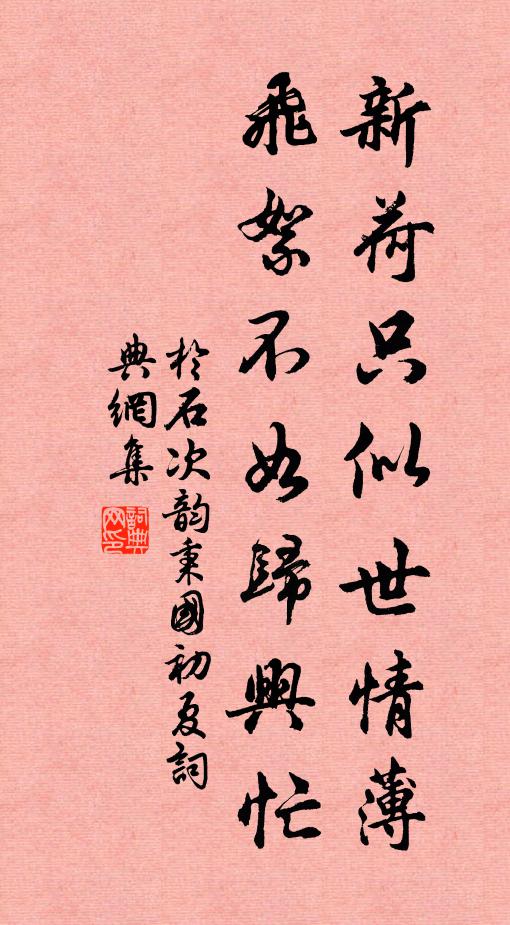 新荷只似世情薄
飛絮不如歸興忙
於石次韵秉國初夏詞
典網集
詞典網印